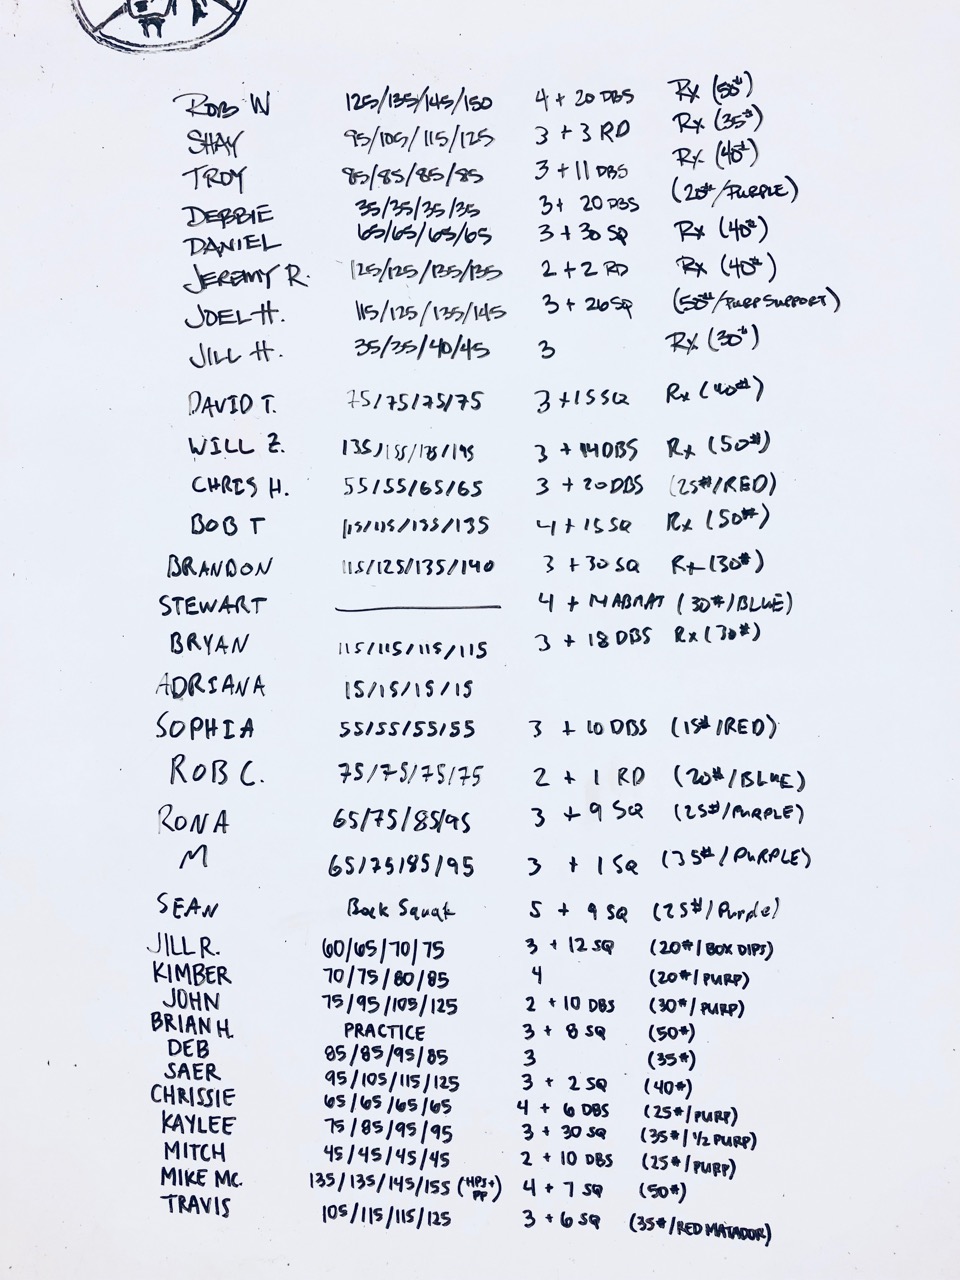 ROB W 125/135/145/150 4 + 20 DBS Rx (50#)
SHAY 95/105/115/125 3 + 3 RD Rx (35#)
TROY 85/85/85/85 3 + 11 DBS Rx (40#)
DEBBIE 35/35/35/35 3 + 20 DBS (20#/PURPLE)
DANIEL 65/65/65/65 3 + 30 SQ Rx (40#)
JEREMY R. 125/125/135/135 2 + 2 RD Rx (40#)
JOEL H. 115/125/135/145 3 + 26 SQ (50#/PURP SUPPORT)
JILL H. 35/35/40/45 3 Rx (30#)
DAVID T. 75/75/75/75 3 + 15 SQ Rx (40#)
WILL Z. 135/155/175/195 3 + 14 DBS Rx (50#)
CHRIS H. 55/55/65/65 3 + 20 DBS (25#/RED)
BOB T 115/115/135/135 4 + 15 SQ Rx (50#)
BRANDON 115/125/135/140 3 + 30 SQ Rx (30#)
STEWART 4 + 14 ABMAT (30#/BLUE)
BRYAN 115/115/115/115 3 + 18 DBS Rx (30#)
ADRIANA 15/15/15/15
SOPHIA 55/55/55/55 3 + 10 DBS (15#/RED)
ROB C. 75/75/75/75 2 + 1 RD (20#/BLUE)
RONA 65/75/85/95 3 + 9 SQ (25#/PURPLE)
M 65/75/85/95 3 + 1 SQ (35#/PURPLE)
SEAN Back Squat 5 + 9 SQ (25#/Purple)
JILL R. 60/65/70/75 3 + 12 SQ (20#/BOX DIPS)
KIMBER 70/75/80/85 4 (20#/PURP)
JOHN 75/95/105/125 2 + 10 DBS (30#/PURP)
BRIAN H. PRACTICE 3 + 8 SQ (50#)
DEB 85/85/95/85 3 (35#)
SAER 95/105/115/125 3 + 2 SQ (40#)
CHRISSIE 65/65/65/65 4 + 6 DBS (25#/PURP)
KAYLEE 75/85/95/95 3 + 30 SQ (35#/1/2 PURP)
MITCH 45/45/45/45 2 + 10 DBS (25#/PURP)
MIKE MC. 135/135/145/155 (HPS+ PP) 4 + 7 SQ (50#)
TRAVIS 105/115/115/125 3 + 6 SQ (35#/RED MATADOR)